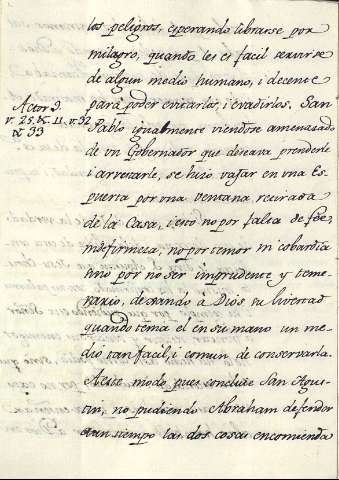 los peligros, esperando librarse por
milagro, quando les es facil servirse
de algun medio humano, i decente
para poder evitarlos, i evadirlos. San
Actor 9.
v. 25. 11. v. 32
33
Pablo igualmente viendose amenazado
de un Gobernador que deseava prenderle
i arrestarle, se hizo vajar en una Es
puerta por una ventana
de la Casa, i esto no por falta de fée,
ni firmeza, no por temor ni cobardia
sino por no ser imprudente y teme
rario, dexando à Dios su livertad
quando tenia el en su mano un me
dio tan facil, i comun de conservarla.
A este modo pues concluie San Agus
tin, no pudiendo Abraham defender
a un tiempo las dos cosas encomienda